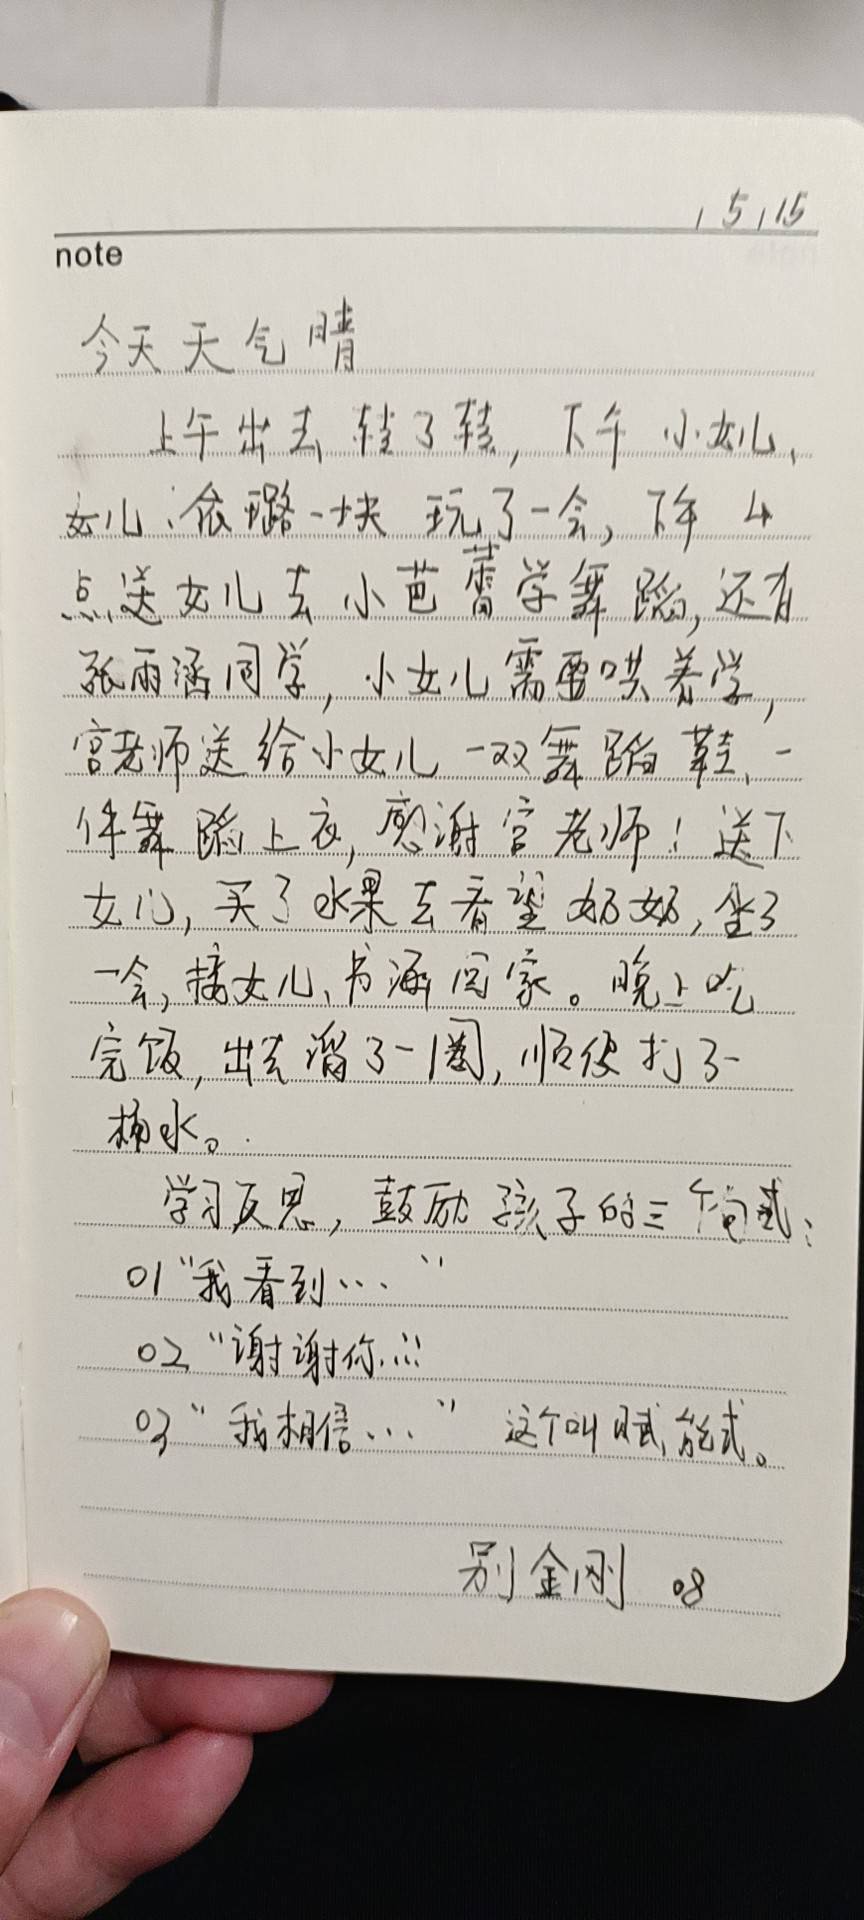 , 5, 15
note
今天天气晴
上午出去转了转,下午小女儿、
女儿、依璐一块玩了一会,下午4
点送女儿去小芭蕾学舞蹈,还有
张雨涵同学,小女儿需要哄着学,
宫老师送给小女儿一双舞蹈鞋、一
件舞蹈上衣,感谢宫老师!送下
女儿,买了水果去看望奶奶,坐了
一会,接女儿、书涵回家。晚上吃
完饭,出去溜了一圈,顺便打了一
桶水。
学习反思,鼓励孩子的三个句式:
01“我看到…”
02“谢谢你…”
03“我相信…”这个叫赋能式。
别金刚 08